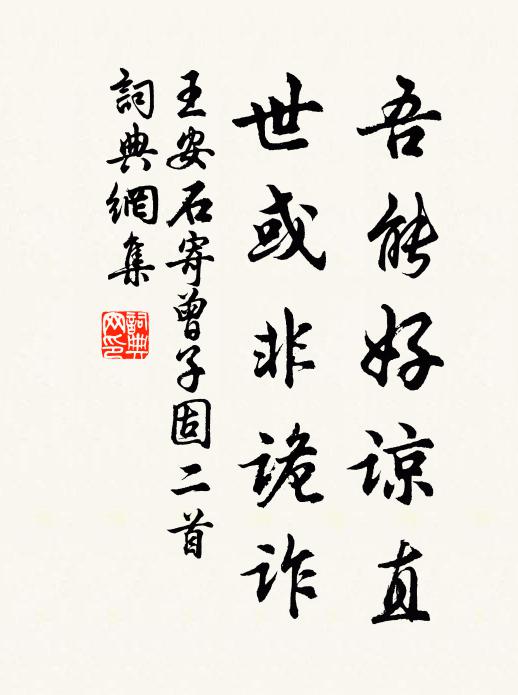 吾能好諒直
世或非詭诈
王安石寄曾子固二首
詞典網集
詞典网印